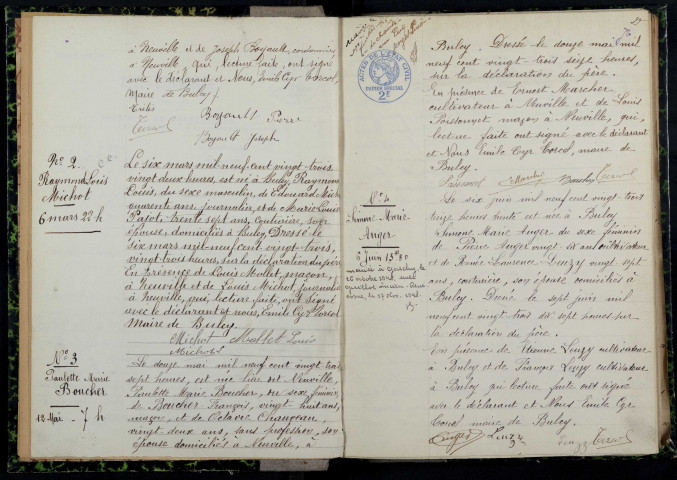 à Neuville et de Joseph Boyault, cordonnier
à Neuville qui, lecture faite, ont signé
avec le déclarant et Nous, Emile Cyr Torcol,
Maire de Bulcy.
Torcol
Boyault Pierre
Boyault Joseph
No 2
Raymond Louis
Michot
6 mars 22 h
Le six mars mil neuf cent vingt-trois,
vingt deux heures, est né à Bulcy, Raymond
Louis, du sexe masculin, de Edouard Michot
quarente ans, journalier, et de Marie Louise
Pajot, trente sept ans, couturière, son
épouse, domiciliés à Bulcy. Dressé le
six mars mil-neuf-cent vingt-trois,
vingt-trois heures, sur la déclaration du père
en Présence de Louis Mollet, maçon,
à Neuville et de Louis Michot, journalier
à Neuville, qui, lecture faite, ont signé
avec le déclarant et nous, Emile Cyr Torcol
Maire de Bulcy.
Michot Mollet Louis
Michot
No 3
Paulette Marie
Boucher
12 Mai - 7 h
Le douze mai mil neuf cent vingt trois
sept heures, est née lieu dit Neuville,
Paulette Marie Boucher, du sexe féminin,
de Boucher François, vingt huit ans,
maçon, et de Octavie
vingt deux ans, sans profession, son
épouse domiciliés à Neuville, à
ACTES DE L'ÉTAT CIVIL
PAPIER SPÉCIAL
2F
Bulcy. Dressé le douze mai mil
neuf cent vingt-trois sept heures,
sur la déclaration du père.
En présence de Ernest Marcher
cultivateur à Neuville et de Louis
Poissonnet maçon à Neuville, qui,
lecture faite ont signé avec le déclarant
et Nous Emile Cyr Torcol, maire de
Bulcy.
Boucher Torcol
No 4
Simone Marie
Auger
6 Juin 13h30
Le six juin mil neuf cent vingt-trois
treize heures trente est née à Bulcy
Simone Marie Auger du sexe féminin
de Pierre Auger vingt six ans cultivateur
et de Renée Laurence Leuzy vingt sept
ans, couturière, son épouse domiciliés à
Bulcy. Dressé le sept juin mil
neuf cent vingt trois dix sept heures sur
la déclaration du père.
En présence de Etienne Leuzy cultivateur
à Bulcy et de François Leuzy cultivateur
à Bulcy qui lecture faite ont signé
avec le déclarant et Nous Emile Cyr
Torcol maire de Bulcy.
Auger Leuzy
Leuzy Torcol